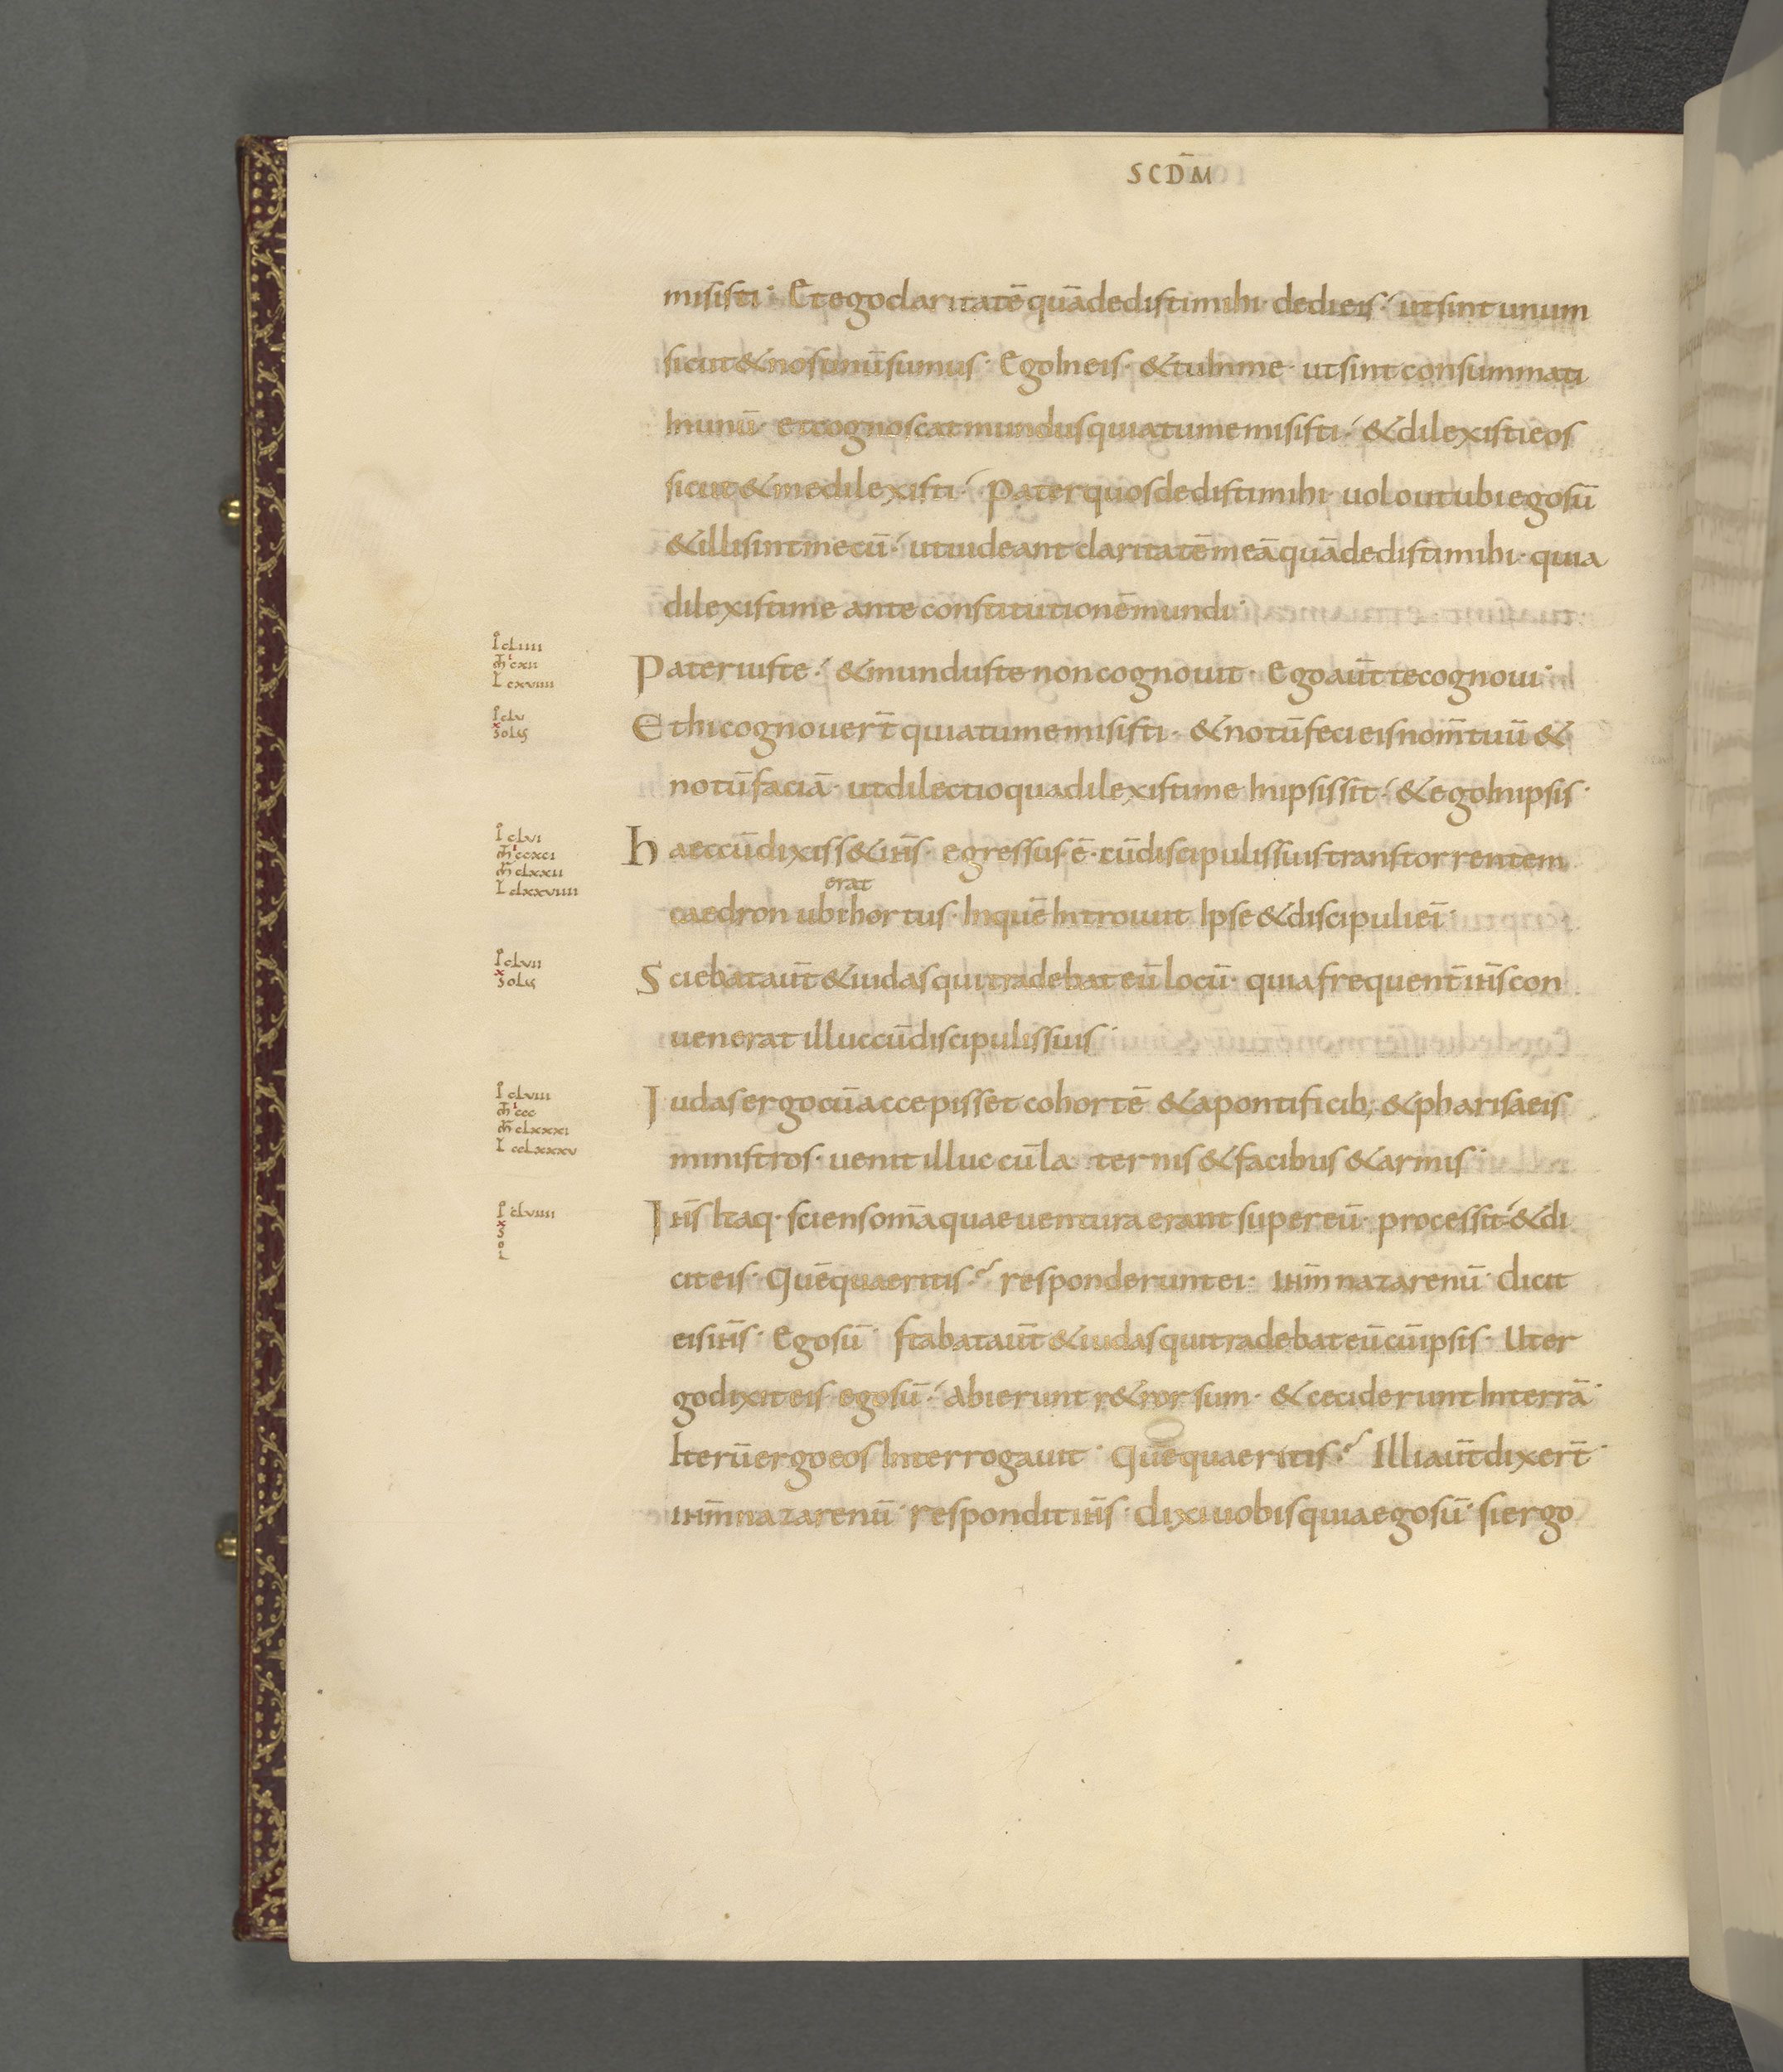 SCDM̄
misisti· Et ego claritatē quā dedisti mihi dedi eis· ut sint unum
sicut & nos unū sumus· Ego in eis· & tu in me· ut sint consummati
in unū· et cognoscat mundus quia tu me misisti· & dilexisti eos
sicut & me dilexisti· Pater quos dedisti mihi uolo ut ubi ego sū
& illi sint mecū· ut uideant claritatē meā quā dedisti mihi· quia
dilexisti me ante constitutionē mundi·
I cliiii
cxii
L cxuiiii
Pater iuste· & mundus te non cognouit· Ego aūt te cognoui·
I clu
x sol
Et hi cognouer̄t quia tu me misisti· & notū feci eis nom̄ tuū &
notū faciā· ut dilectio qua dilexisti me in ipsis sit· & ego in ipsis·
I clui
ccxci
clxxii
L clxxuiiii
Haec cū dixiss& ih̄s· egressus ē· cū discipulis suis trans torrentem
erat
caedron ubi hortus· In quē introiuit ipse & discipuli ei·
I cluii
x sol
Sciebat aūt & iudas qui tradebat eū locū· quia frequent̄ ih̄s con
uenerat illuc cū discipulis suis·
I cluiii
ccc
clxxxi
L cclxxxu
Iudas ergo cū accepisset cohortē & a pontificib; & pharisaeis
ministros· uenit illuc cū la ternis & facibus & armis·
I cluiiii
x
s
o
L
Ih̄s itaq· sciens om̄a quae uentura erant super eū· processit· & di
cit eis· Quē quaeritis· responderunt ei· ih̄m nazarenū· dicit
eis ih̄s· Ego sū· stabat aūt & iudas qui tradebat eū cū ipsis· Ut er
go dixit eis ego sū· abierunt r&rorsum· & ceciderunt in terrā·
Iterū ergo eos interrogauit· Quē quaeritis· Illi aūt dixer̄t·
ih̄m nazarenū· respondit ih̄s· dixi uobis quia ego sū· si ergo